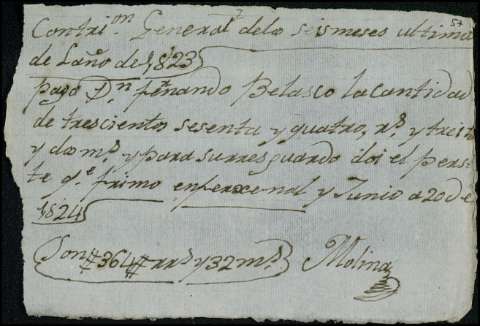 57
Contri.on General dela seis meses ultimos
de Laño de 1823
pago Dn fernando Belasco la cantidad
de trescientos sesenta y quatro, rs y treita
y dos ms y para su rresguardo doi el pers.
te qe firmo en y Junio a 20 de
1824
Son #364# rrs y 32 ms Molina